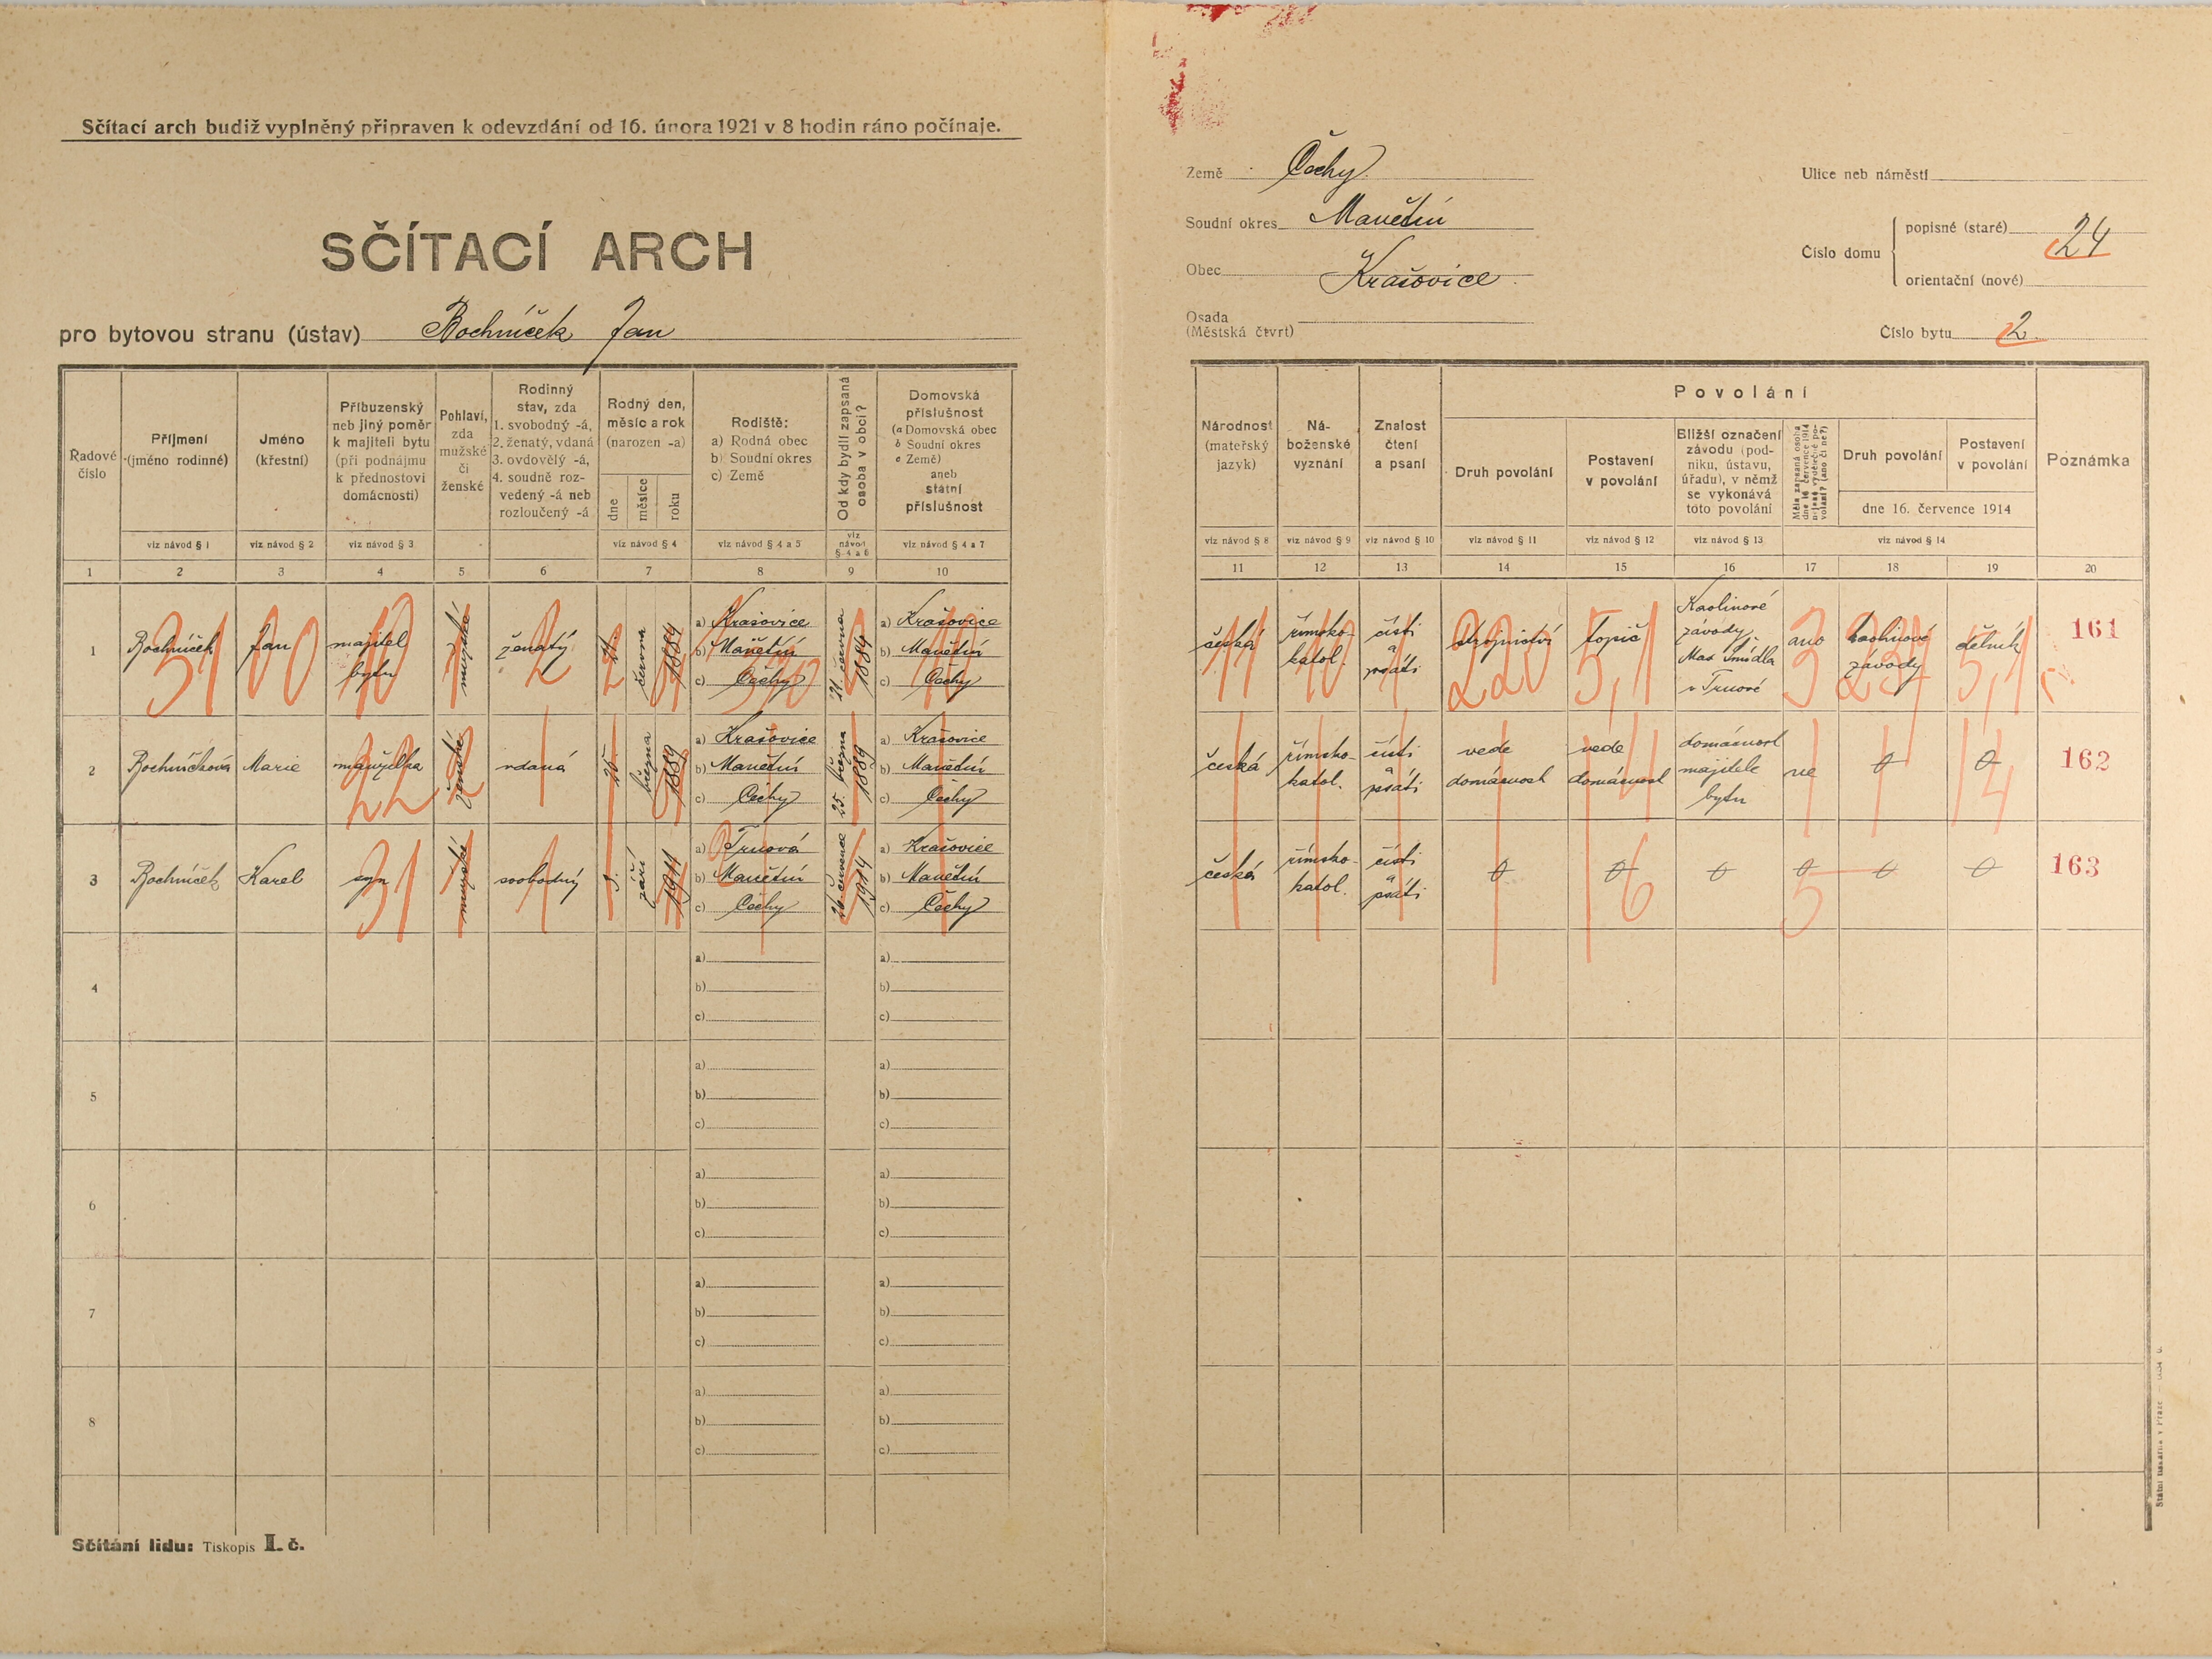 Sčítací arch budiž vyplněný připraven k odevzdání od 16. února 1921 v 8 hodin ráno počínaje.
SČÍTACÍ ARCH
pro bytovou stranu (ústav) Bochníček Jan
Země Čechy
Soudní okres Manětín
Obec Krašovice
Osada
(Městská čtvrt)
Ulice neb náměstí
Číslo domu
popisné (staré) 24
orientační (nové)
Číslo bytu 2
Řadové číslo
Příjmení (jméno rodinné)
Jméno (křestní)
Příbuzenský neb jiný poměr k majiteli bytu (při podnájmu k přednostovi domácnosti)
Pohlaví, zda mužské či ženské
Rodinný stav, zda 1. svobodný -á, 2. ženatý, vdaná 3. ovdovělý -á, 4. soudně rozvedený -á neb rozloučený -á
Rodný den, měsíc a rok (narozen -a)
dne měsíce roku
Rodiště: a) Rodná obec b) Soudní okres c) Země
Od kdy bydlí zapsaná osoba v obci?
Domovská příslušnost (a Domovská obec b Soudní okres c Země) aneb státní příslušnost
Národnost (mateřský jazyk)
Náboženské vyznání
Znalost čtení a psaní
Povolání
Druh povolání
Postavení v povolání
Bližší označení závodu (podniku, ústavu, úřadu), v němž se vykonává toto povolání
Měla zapsaná osoba dne 16 července 1914 nějaké výdělečné povolání? (ano či ne?)
Druh povolání
Postavení v povolání
dne 16. července 1914
Poznámka
viz návod § 1 viz návod § 2 viz návod § 3 viz návod § 4 viz návod § 4 a 5 viz návod § 4 a 6 viz návod § 4 a 7
viz návod § 8 viz návod § 9 viz návod § 10 viz návod § 11 viz návod § 12 viz návod § 13 viz návod § 14
1 2 3 4 5 6 7 8 9 10
11 12 13 14 15 16 17 18 19 20
1 Bochníček Jan majitel bytu mužské ženatý 21. června 1884 a) Krašovice b) Manětín c) Čechy 21. června 1884 a) Krašovice b) Manětín c) Čechy
česká římsko-katol. čísti a psáti strojnictví topič Kaolinové závody Max Šmídla v Trnové ano kaolinové závody dělník 161
31 00 10 1 2 11 10 1 220 5,1 3 237 5,1
2 Bochníčková Marie manželka ženské vdaná 25. března 1889 a) Krašovice b) Manětín c) Čechy 25. března 1889 a) Krašovice b) Manětín c) Čechy
česká římsko-katol. čísti a psáti vede domácnost vede domácnost domácnost majitele bytu ne 0 0 162
22 2 14
3 Bochníček Karel syn mužské svobodný září 1911 a) Trnová b) Manětín c) Čechy 26. července 1914 a) Krašovice b) Manětín c) Čechy
česká římsko-katol. čísti a psáti 0 0 0 0 0 0 163
31 1 1 6 5
4 a) b) c) a) b) c)
5 a) b) c) a) b) c)
6 a) b) c) a) b) c)
7 a) b) c) a) b) c)
8 a) b) c) a) b) c)
Sčítání lidu: Tiskopis I. č.
Státní tiskárna v Praze